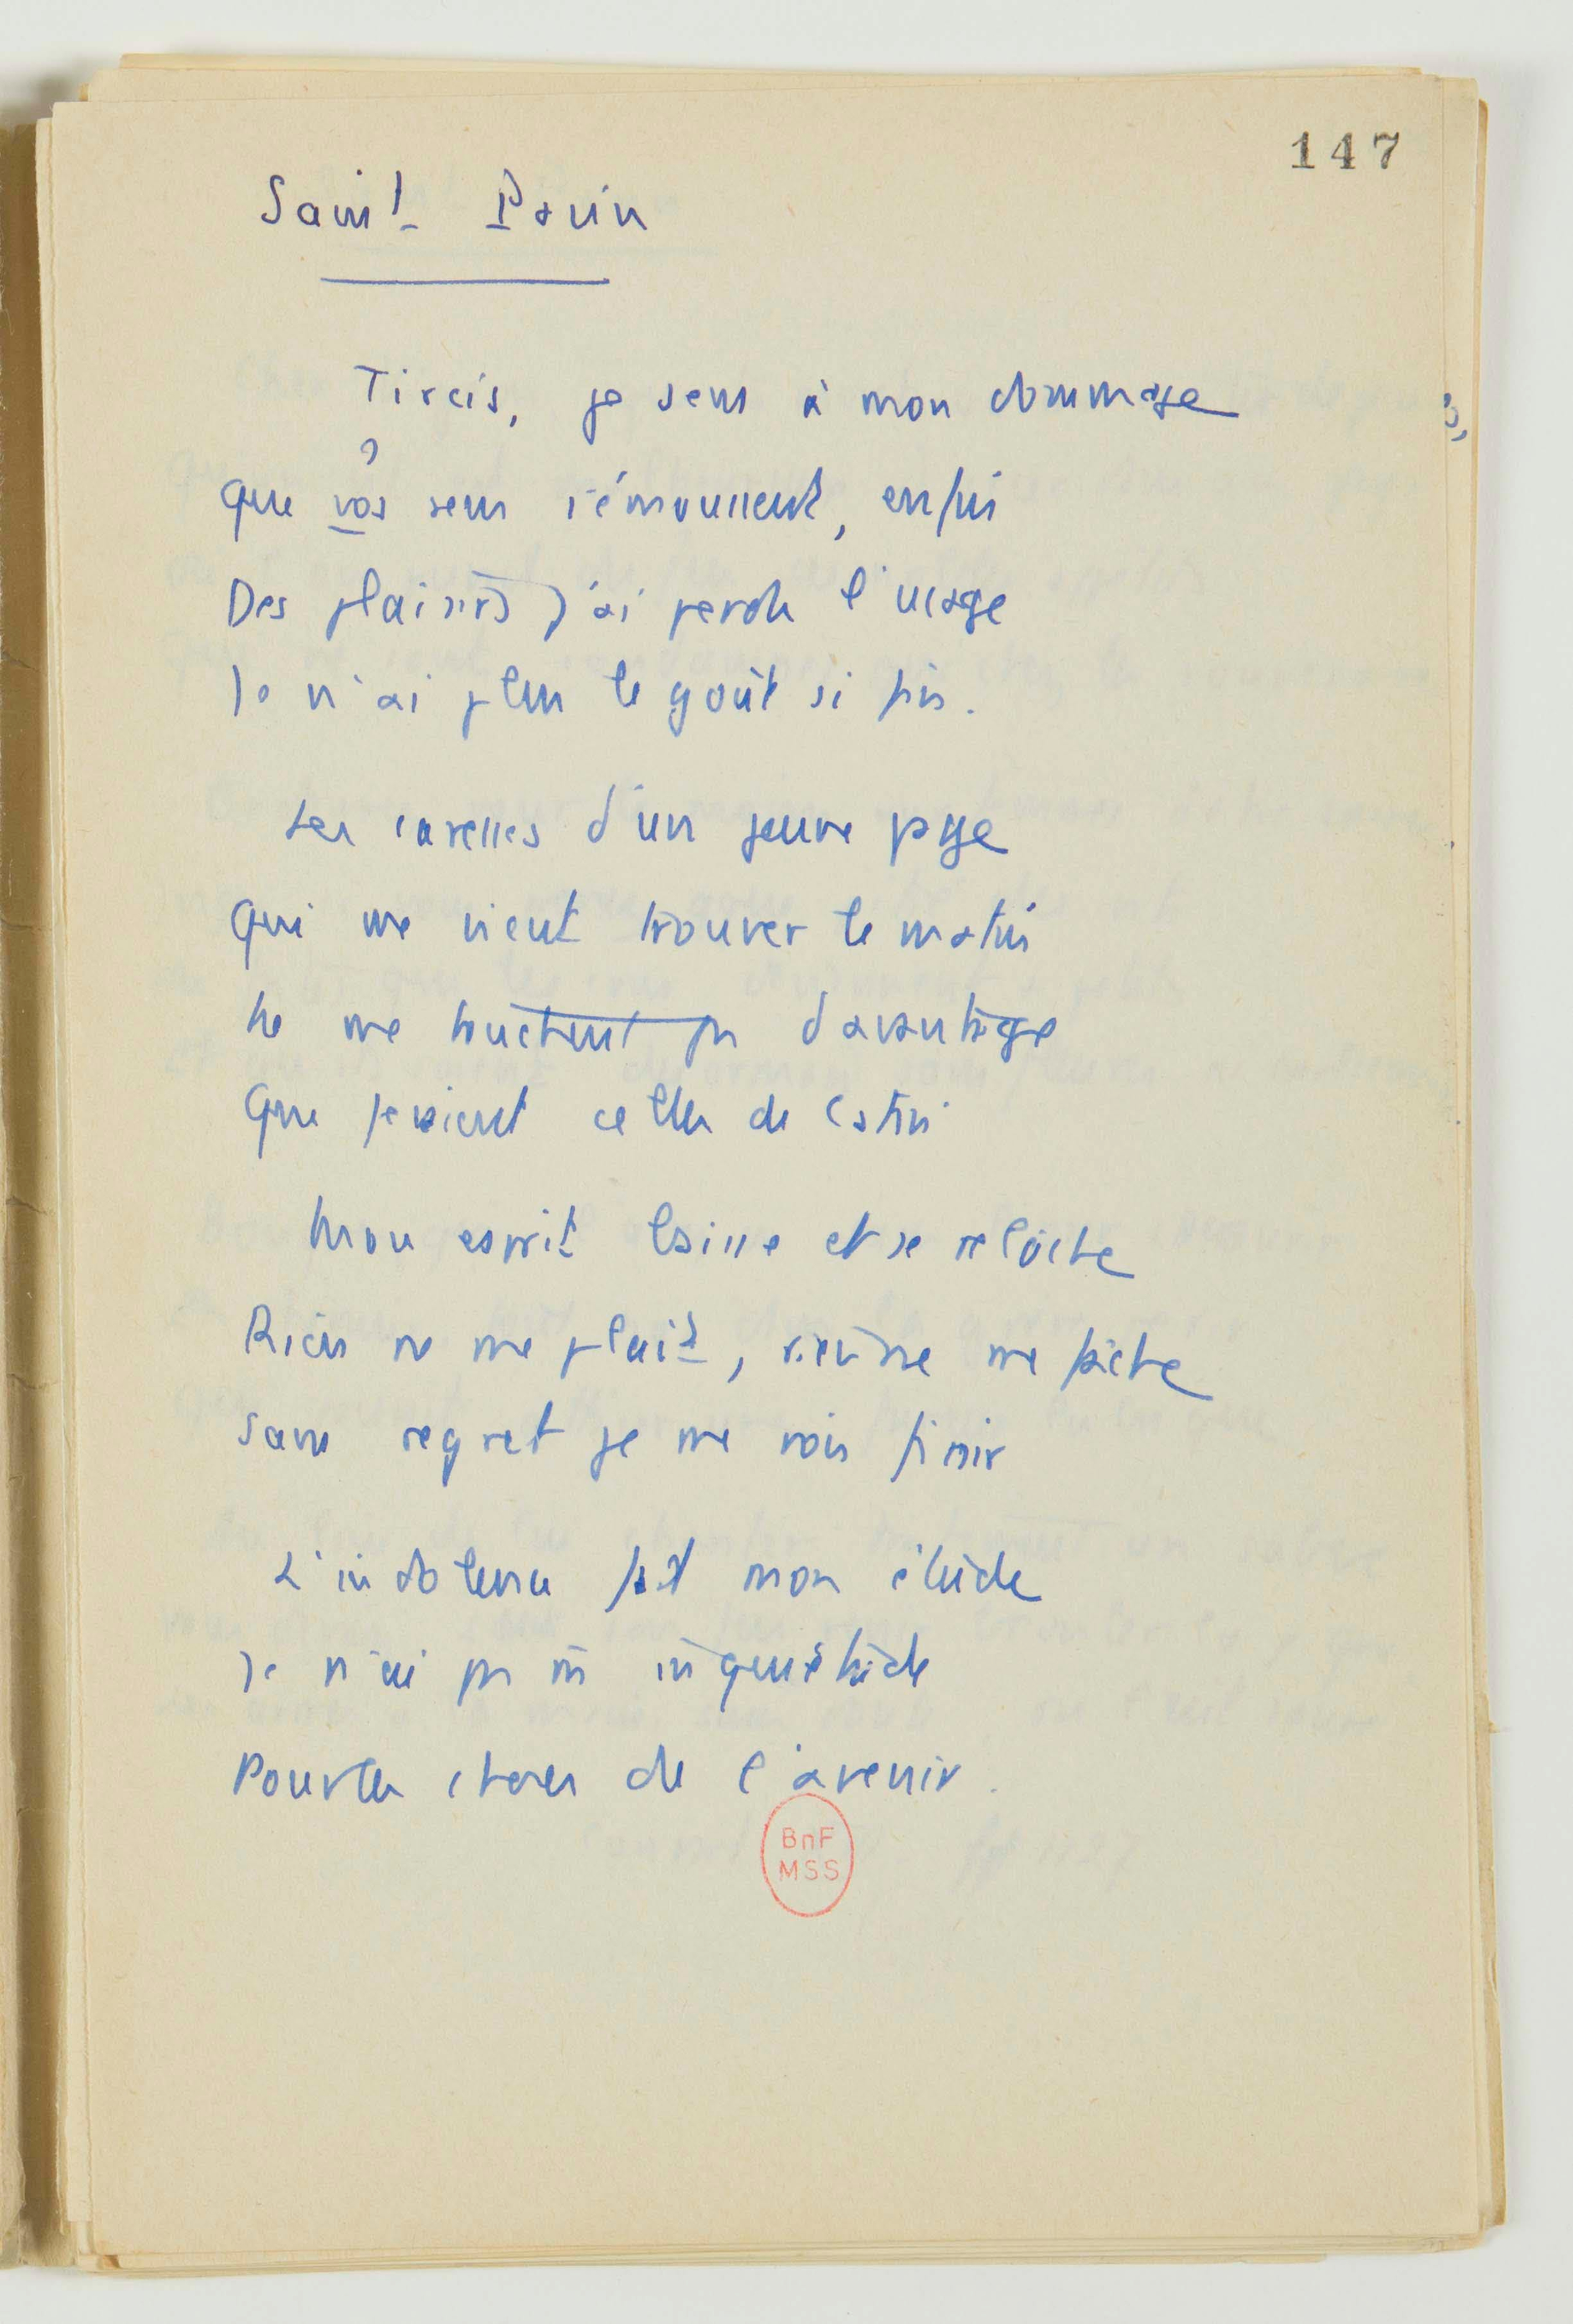 147
Saint Pavin
Tircis, je sens à mon dommage
?
Que vos sens s'émoussent, enfin
Des plaisirs j'ai perdu l'usage
Je n'ai plus le goût si fin.
Les caresses d'un jeune page
Qui me vient trouver le matin
Ne me touchent pas davantage
Que feroient celles de Catin
Mon esprit baisse et se relâche
Rien ne me plait, rien ne me fâche
Sans regret je me vois finir
L'indolence fait mon étude
Je n'ai pas ni inquiétude
Pour les choses de l'avenir.
BnF
MSS